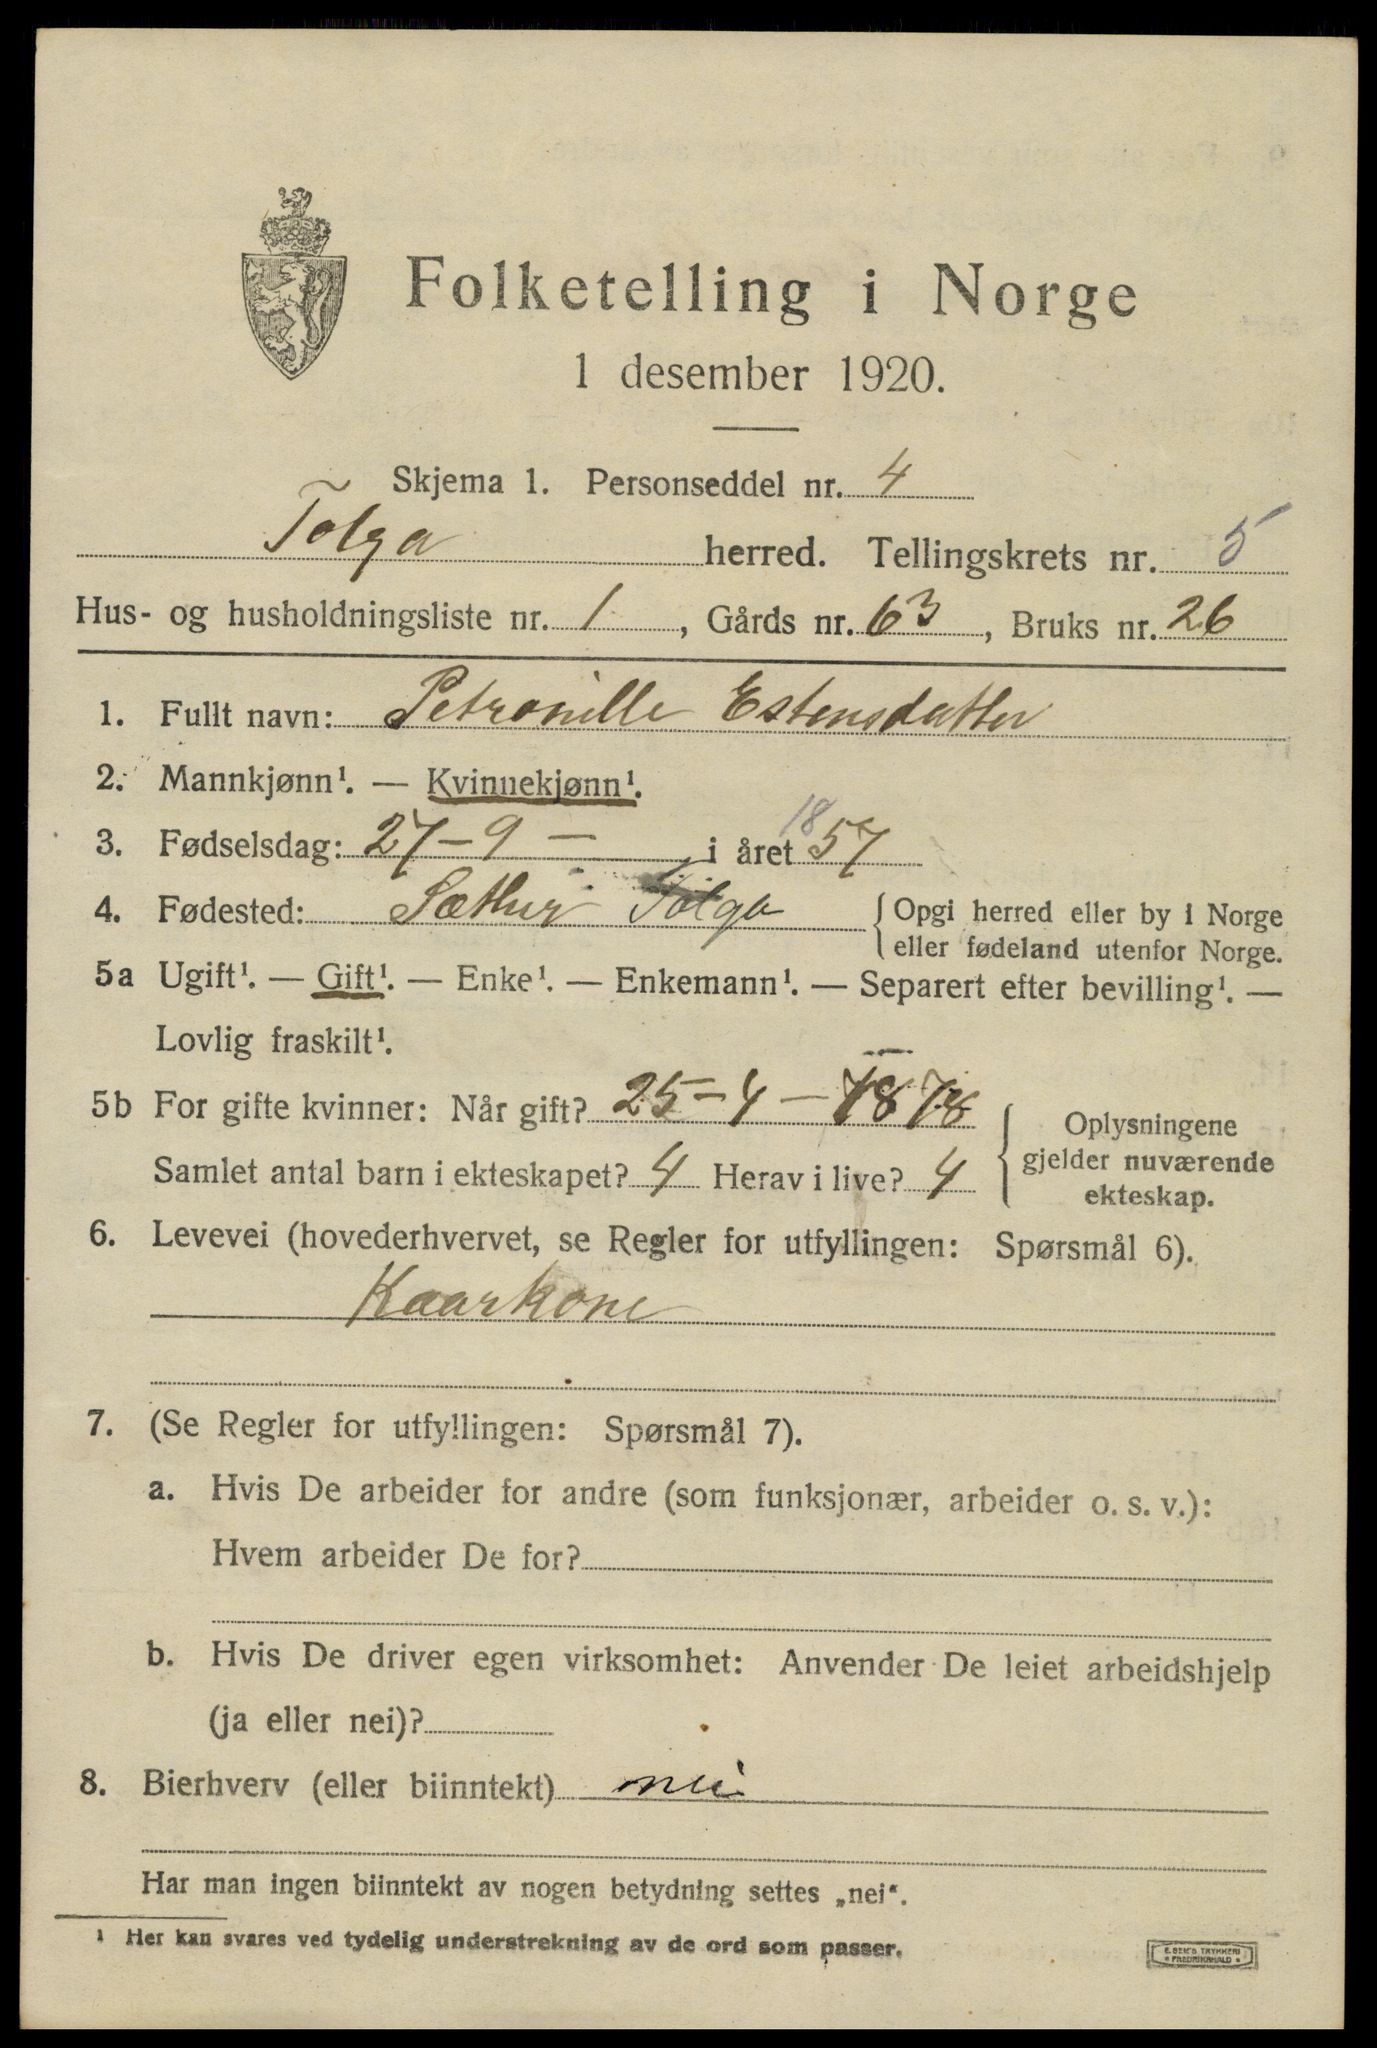 Folketelling i Norge
1 desember 1920.
Skjema 1. Personseddel nr. 4
Tolga herred. Tellingskrets nr. 5
Hus- og husholdningsliste nr. 1, Gårds nr. 63, Bruks nr. 26
1. Fullt navn: Petronille Estensdatter
2. Mannkjønn¹. — Kvinnekjønn¹.
3. Fødselsdag: 27-9 — i året 1857
4. Fødested: Sæther Tolga {Opgi herred eller by i Norge
eller fødeland utenfor Norge.
5a Ugift¹. — Gift¹. — Enke¹. — Enkemann¹. — Separert efter bevilling¹. —
Lovlig fraskilt¹.
5b For gifte kvinner: Når gift? 25-4-1878
Samlet antal barn i ekteskapet? 4 Herav i live? 4
Oplysningene
gjelder nuværende
ekteskap.
6. Levevei (hovederhvervet, se Regler for utfyllingen: Spørsmål 6).
Kaarkone
7. (Se Regler for utfyllingen: Spørsmål 7).
a. Hvis De arbeider for andre (som funksjonær, arbeider o. s. v.):
Hvem arbeider De for?
b. Hvis De driver egen virksomhet: Anvender De leiet arbeidshjelp
(ja eller nei)?
8. Bierhverv (eller biinntekt) nei
Har man ingen biinntekt av nogen betydning settes „nei“.
¹ Her kan svares ved tydelig understrekning av de ord som passer.
E. SEM'S TRYKKERI
• FREDRIKSHALD •